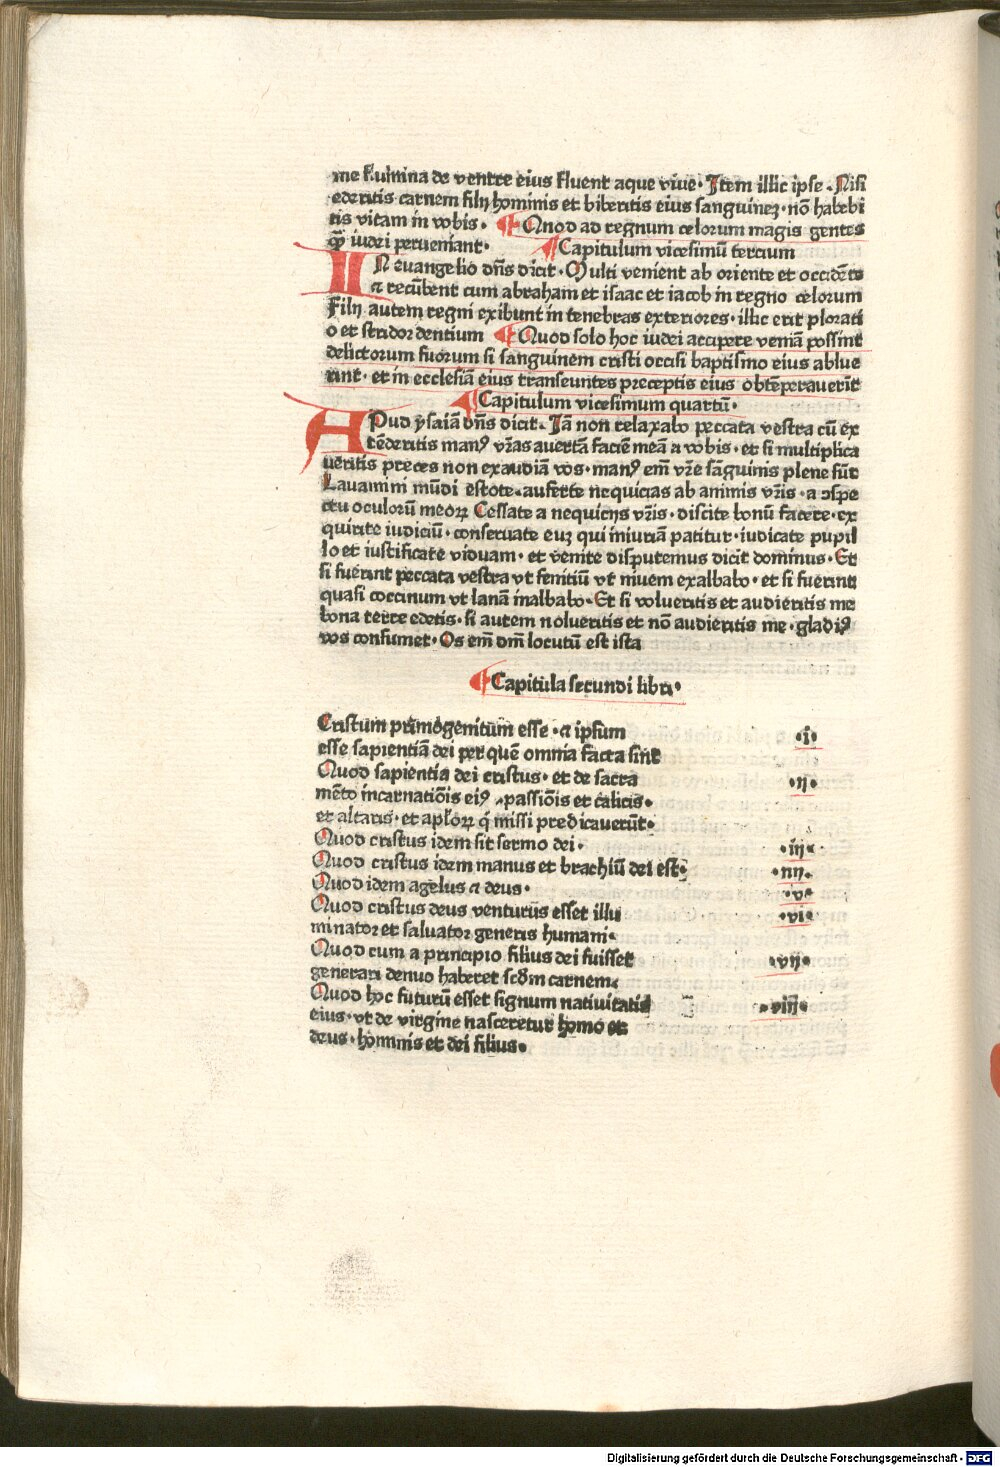 me flumina de ventre eius fluent aque viue· Item illic ipse · Nisi
ederitis carnem filij hominis et biberitis eius sanguinez· nō habebi
tis vitam in vobis · ¶ Quod ad regnum celorum magis gentes
qꝫ iudei perueniant· ¶ Capitulum vicesimū tercium
IN euangelio dn̄s dicit · Multi venient ab oriente et occidēte
⁊ recūbent cum abraham et isaac et iacob in regno celorum
Filij autem regni exibunt in tenebras exteriores· illic erit plorati
o et stridor dentium ¶ Quod solo hoc iudei accipere veniā possint
delictorum suorum si sanguinem cristi occisi baptismo eius ablue
rint· et in ecclesiā eius transeuntes preceptis eius obtēperauerīt
¶ Capitulum vicesimum quartū·
APud ysaiā dn̄s dicit · Iā non relaxabo peccata vestra cū ex
tēderitis manꝰ vr̄as auertā faciē meā a vobis · et si multiplica
ueritis preces non exaudiā vos · manꝰ em̄ vr̄e sāguinis plene sūt
Lauamini mūdi estote· auferte nequicias ab animis vr̄is · a ↄspe
ctu oculorū meoꝝ Cessate a nequicijs vr̄is · discite bonū facere· ex
quirite iudiciū · conseruate euz qui iniuriā patitur· iudicate pupil
lo et iustificate viduam · et venite disputemus dicit dominus · Et
si fuerint peccata vestra vt feniciū vt niuem exalbabo · et si fuerint
quasi coccinum vt lanā inalbabo· Et si volueritis et audieritis me
bona terre edetis· si autem nolueritis et nō audieritis me· gladiꝰ
vos consumet· Os em̄ dn̄i locutū est ista
¶ Capitula secundi libri·
Cristum primogenitum esse · ⁊ ipsum ·i·
esse sapientiā dei per quē omnia facta sint
Quod sapientia dei cristus· et de sacra ·ij·
mēto incarnatiōis eiꝰ · passiōis et calicis·
et altaris· et apl̄oꝝ q̄ missi predicauerūt·
Quod cristus idem sit sermo dei· ·iij·
Quod cristus idem manus et brachiū dei est· ·iiij·
Quod idem agelus ⁊ deus· ·v·
Quod cristus deus venturus esset illu ·vi·
minator et saluator generis humani·
Quod cum a principio filius dei fuisset ·vij·
generari denuo haberet scd̄m carnem·
Quod hoc futurū esset signum natiuitatis ·viij·
eius· vt de virgine nasceretur homo et
deus· hominis et dei filius·
Digitalisierung gefördert durch die Deutsche Forschungsgemeinschaft - DFG